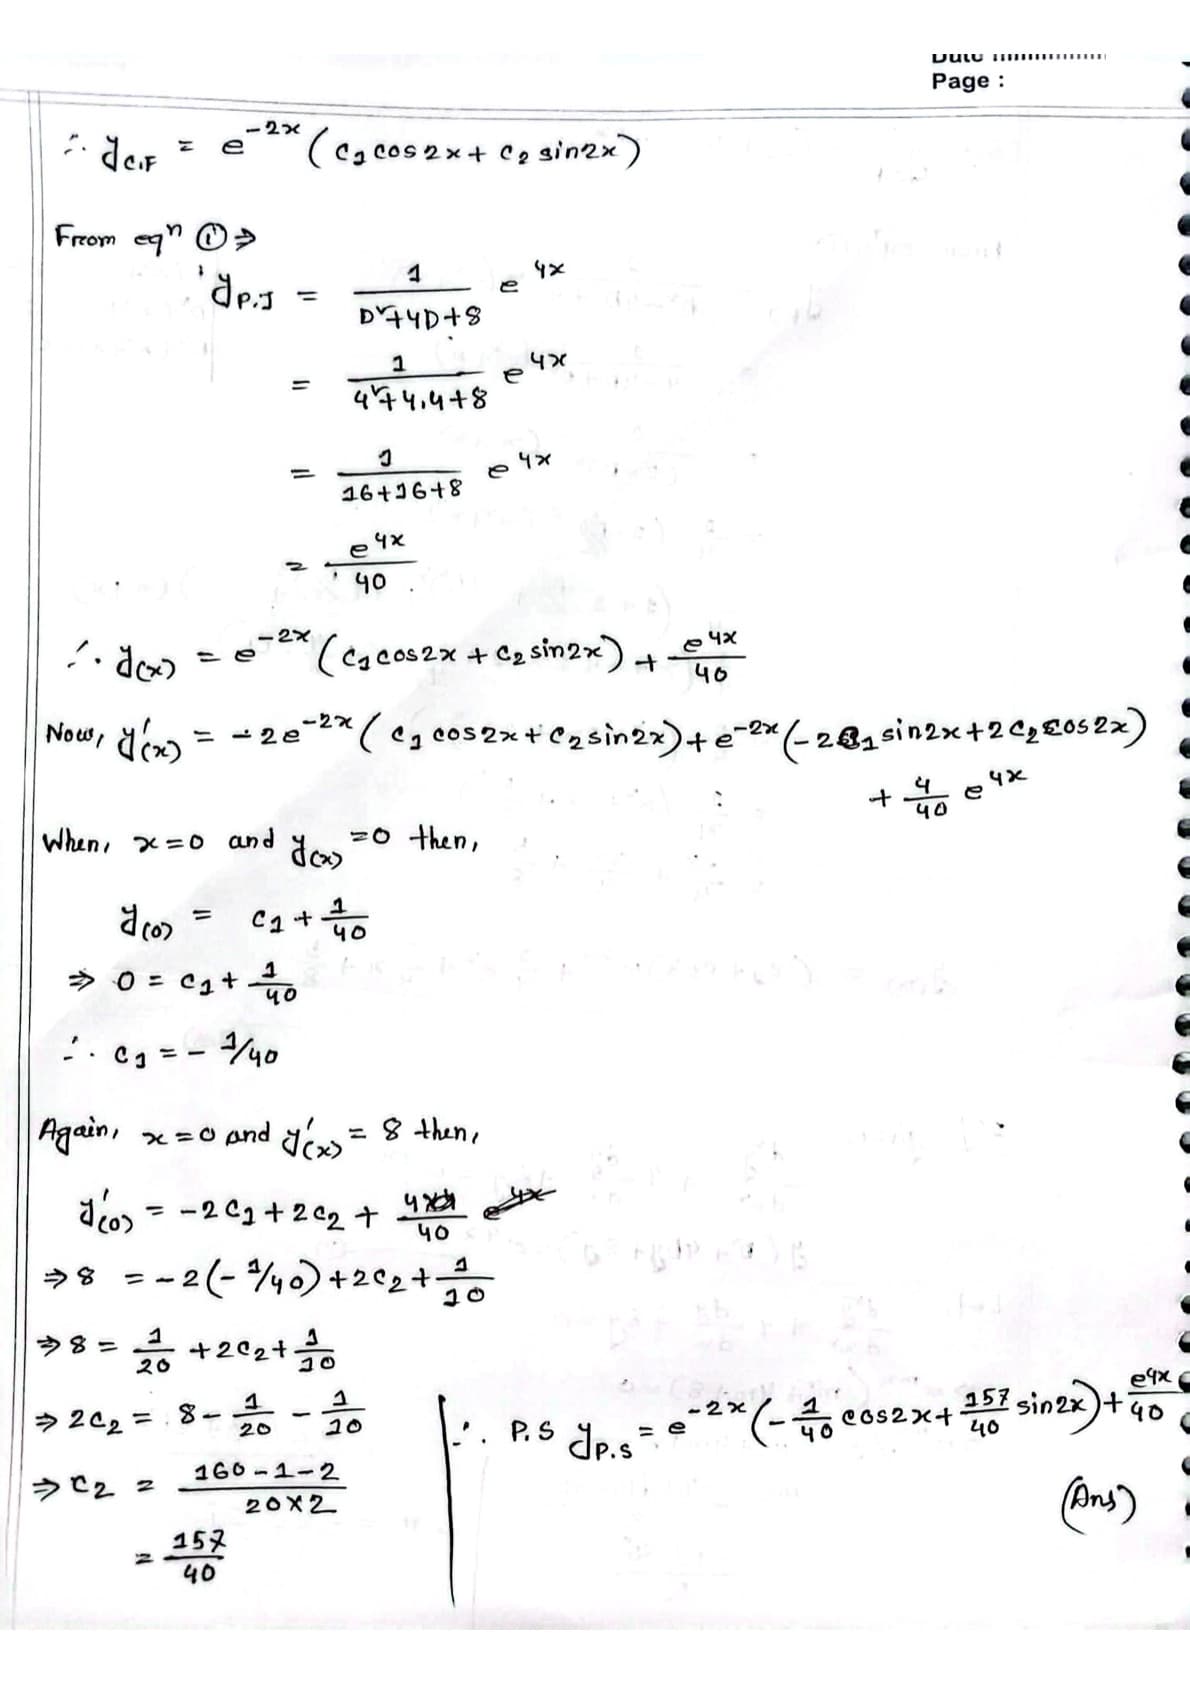 Page :
∴ y_C.F = e^-2x (c1 cos2x + c2 sin2x)
From eqn ① ⇒
y_P.I = 1/(D²+4D+8) e^4x
= 1/(4²+4.4+8) e^4x
= 1/(16+16+8) e^4x
= e^4x/40
∴ y(x) = e^-2x (c1 cos2x + c2 sin2x) + e^4x/40
Now, y'(x) = -2e^-2x (c1 cos2x + c2 sin2x) + e^-2x (-2c1 sin2x + 2c2 cos2x)
+ 4/40 e^4x
When, x=0 and y(x) =0 then,
y(0) = c1 + 1/40
⇒ 0 = c1 + 1/40
∴ c1 = - 1/40
Again, x=0 and y'(x) = 8 then,
y'(0) = -2c1 + 2c2 + 4/40
⇒ 8 = -2(-1/40) + 2c2 + 1/10
⇒ 8 = 1/20 + 2c2 + 1/10
⇒ 2c2 = 8 - 1/20 - 1/10
⇒ c2 = (160-1-2)/(20×2)
= 157/40
∴ P.S y_P.S = e^-2x (-1/40 cos2x + 157/40 sin2x) + e^4x/40
(Ans)